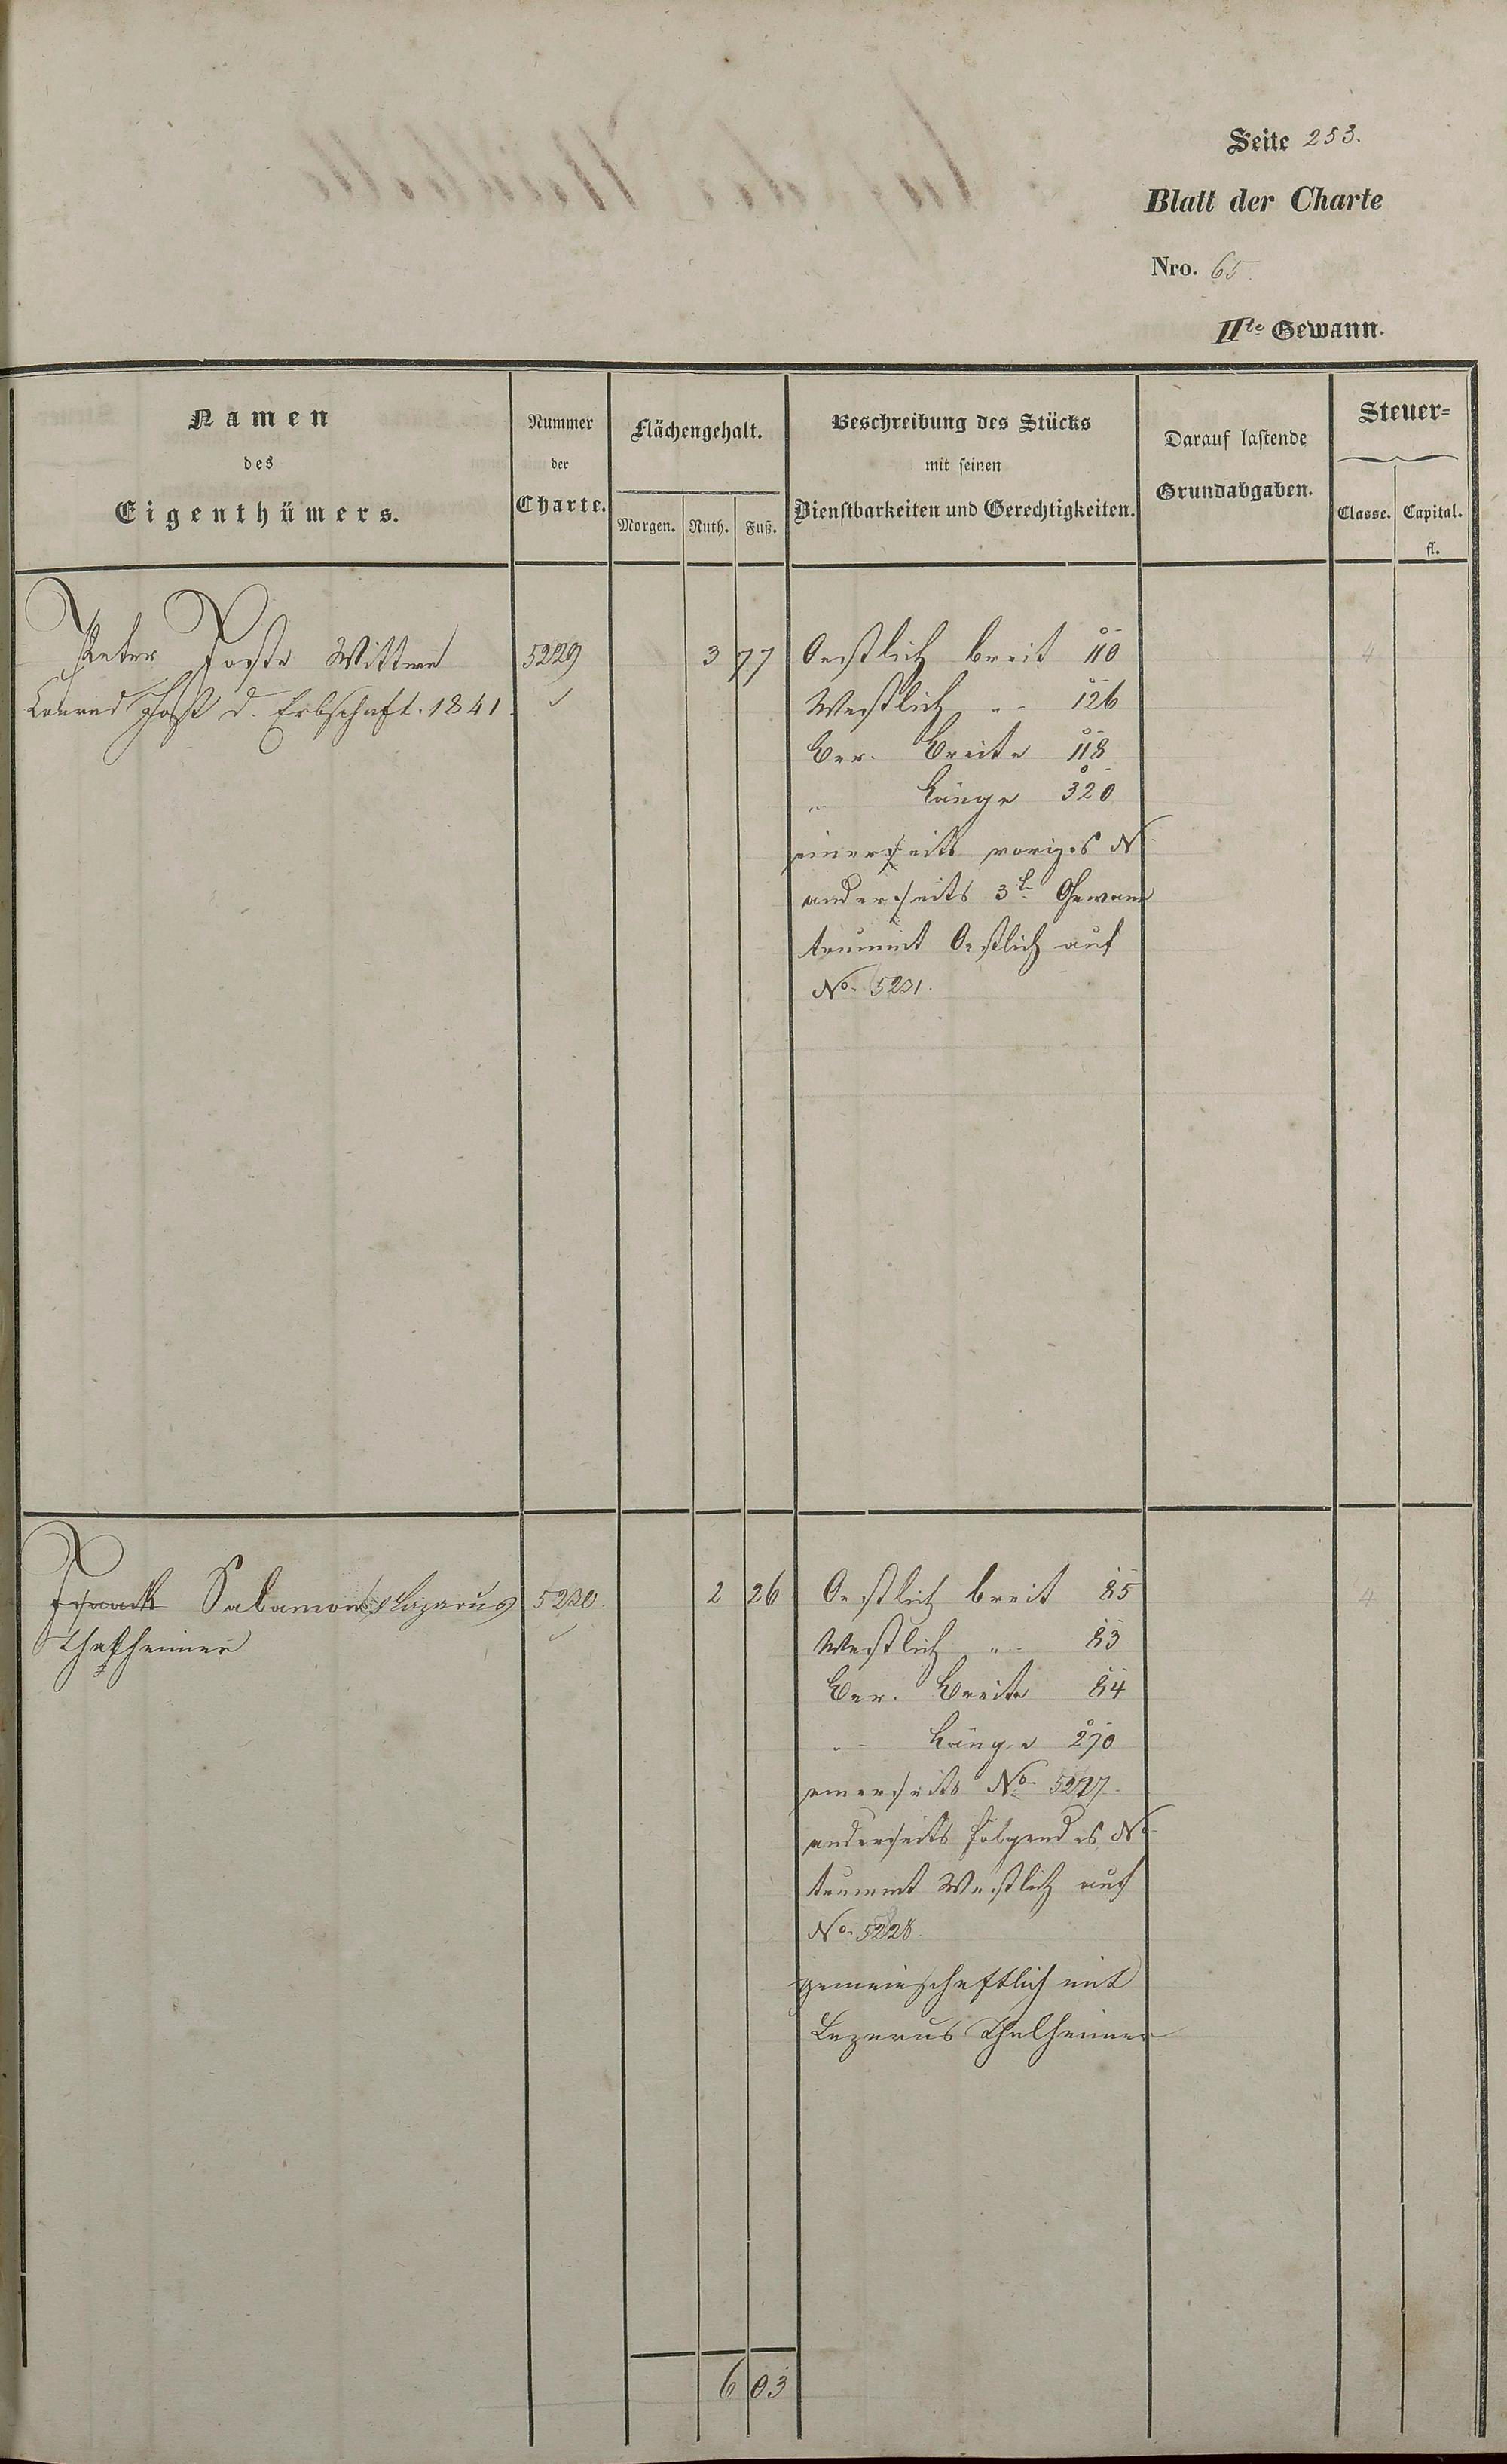 Seite 253.
Blatt der Charte
Nro. 65.
IIte Gewann.
Namen
des
Eigenthümers.
Nummer
der
Charte.
Flächengehalt.
Morgen. Ruth. Fuß.
Beschreibung des Stücks
mit seinen
Dienstbarkeiten und Gerechtigkeiten.
Darauf lastende
Grundabgaben.
Steuer=
Classe. Capital.
fl.
Peter Joste Wittwe 5229 3 77 Oestlich breit 110 4
Conrad Jost d. Erbschaft. 1841. Westlich „ 126
Ver. Breite 118
„ Länge 320
einerseits voriges N
anderseits 3te Gewann
trummt Oestlich auf
No. 5231.
Salamon Lazarus 5230 2 26 Oestlich breit 85 4
Thalheimer Westlich „ 83
Ver. Breite 84
„ Länge 270
einerseits No. 5227.
anderseits folgendes No
trummt Westlich auf
No. 5228.
gemeinschaftlich mit
Lazarus Thalheimer
6 03